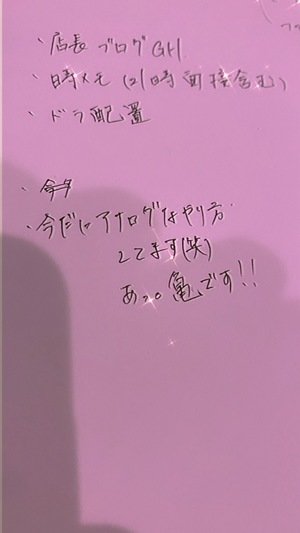 、店長ブログGH
、日時メモ(21時面接含む)
、ドラ配置
、今だにアナログなやり方
してます(笑)
あっ。亀です!!